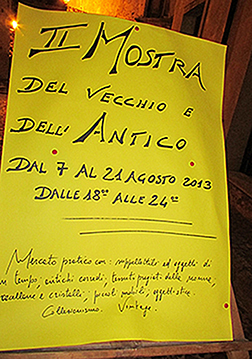 II MOSTRA
DEL VECCHIO E
DELL' ANTICO
DAL 7 AL 21 AGOSTO 2013
DALLE 18ºº ALLE 24ºº
Mercato pratico con: suppellettili ed oggetti di
un tempo, antichi corredi, tessuti pregiati delle nonne,
porcellane e cristalli, piccoli mobili, oggettistica.
Collezionismo. Vintage.